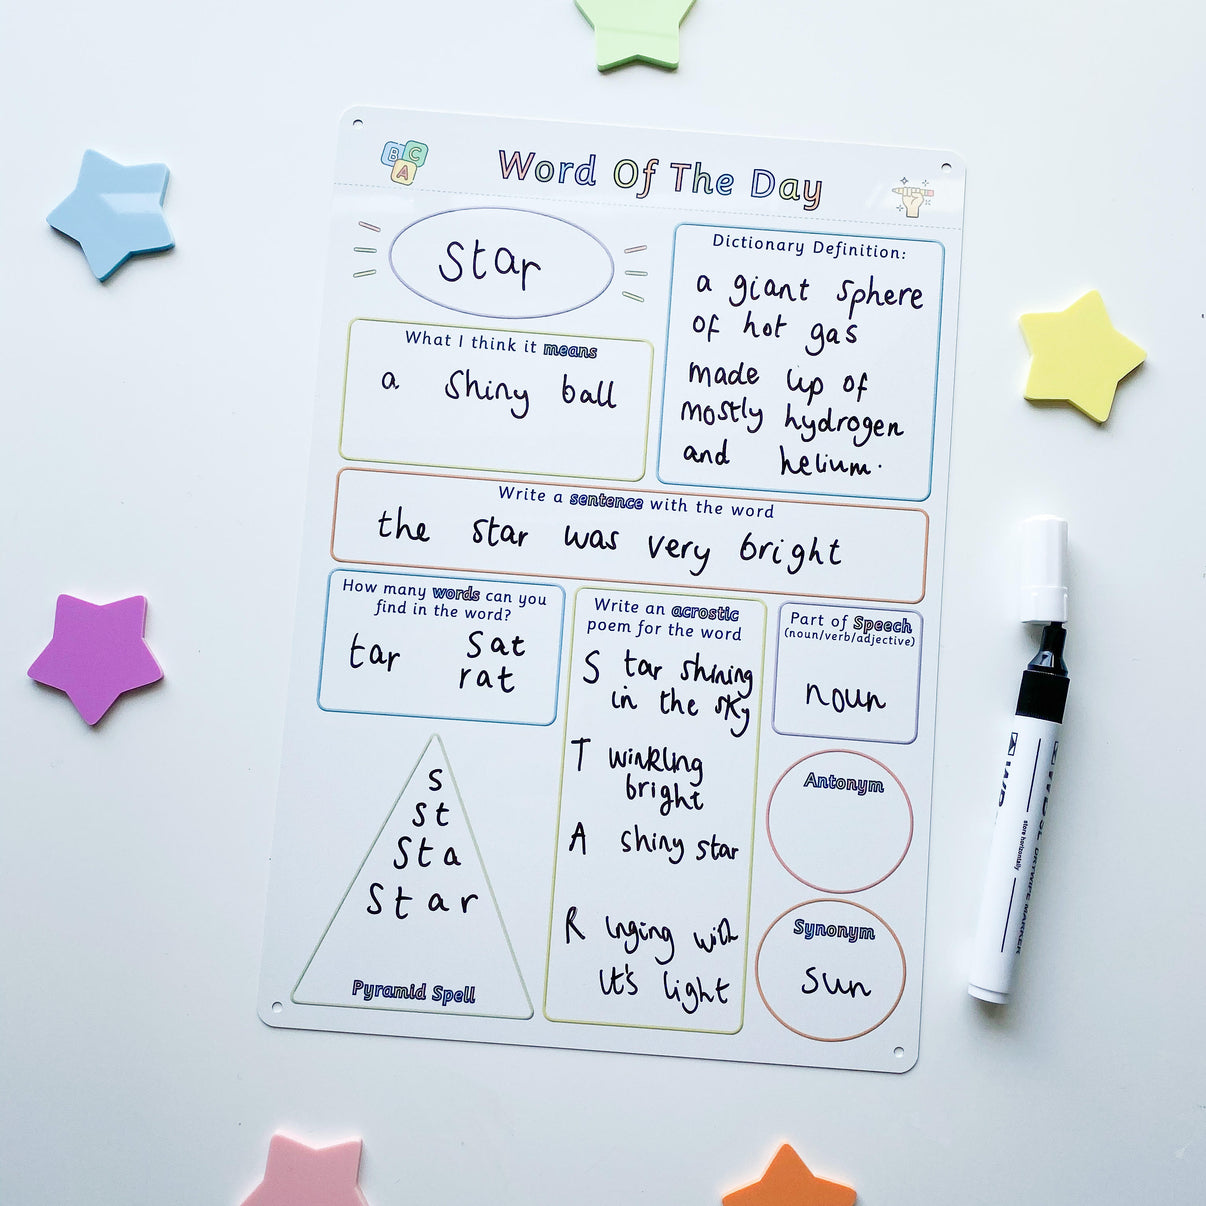 B C
A
Word Of The Day
star
Dictionary Definition:
a giant sphere
of hot gas
made up of
mostly hydrogen
and helium.
What I think it means
a shiny ball
Write a sentence with the word
the star was very bright
How many words can you
find in the word?
tar sat
rat
Write an acrostic
poem for the word
S tar shining
in the sky
T winkling
bright
A shiny star
R inging with
it's light
Part of Speech
(noun/verb/adjective)
noun
Antonym
Synonym
sun
S
St
Sta
Star
Pyramid Spell
store horizontally
DRYWIPE MARKER